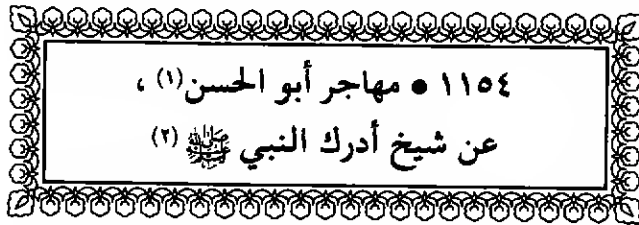 ١١٥٤ ● مهاجر أبو الحسن(١) ،
عن شيخ أدرك النبي ﷺ (٢)